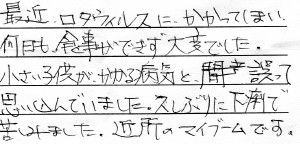 最近、ロタウィルスに、かかってしまい
何日も、食事ができず大変でした。
小さい子供が、かかる病気と、聞き誤って
思い込んでいました。久しぶりに下痢で
苦しみました。近所のマイブームです。